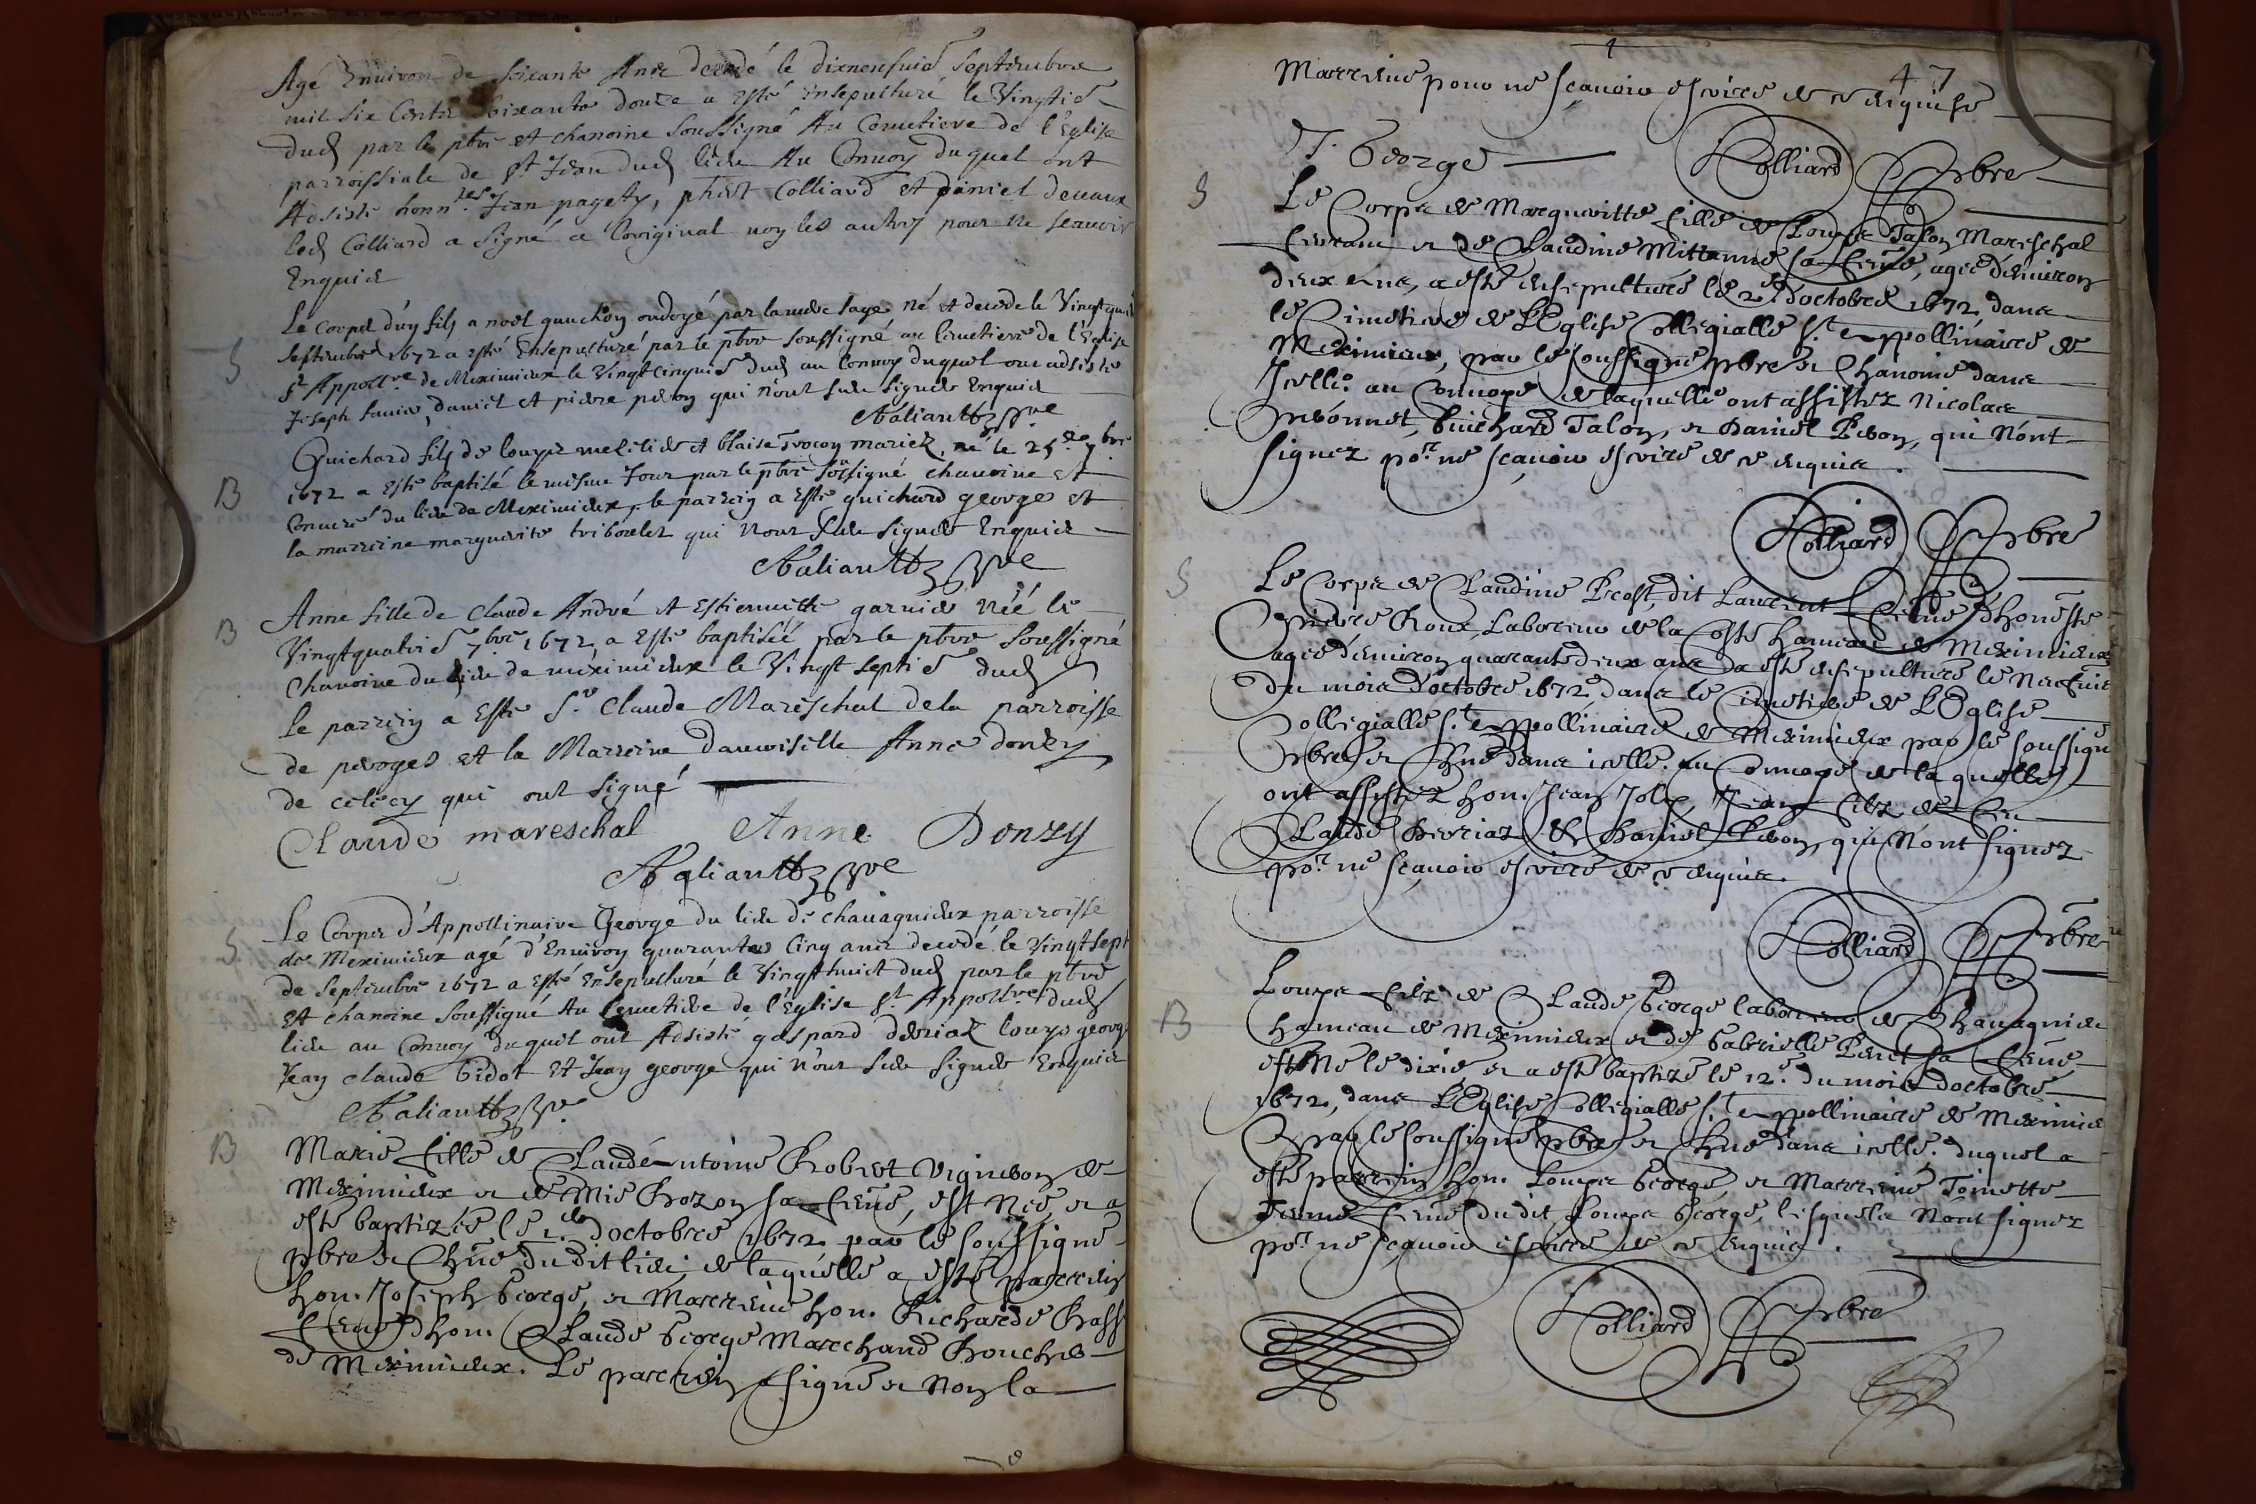 Agé Enuiron de soixante Ans decedé le dixneufuie septembre
mil six Centz soixante douze a esté ensepulturé le Vingtie
dud par le pbre et chanoine soussigné Au Cemetiere de l'Eglise
parroissiale de St Jean dud lieu Au Conuoy duquel ont
Assisté honnles Jean pagety, phbert Colliard et daniel deuaux
led Colliard a signé a l'original non les autres pour ne scauoir
Enquis
Le corps d'un fils a noel guichon ondoyé par la mere sage né et decede le Vingt
septembre 1672 a esté Ensepulturé par le pbre soussigné au Cemetiere de l'Eglise
St Appollre de Meximieux le Vingt cinquie dud au Conuoy duquel ont assisté
Joseph daniel et pierre peron qui n'ont sceu signer Enquis
Guichard fils de louys et blaise mariez, né le 25e 7bre
1672 a esté baptisé le mesme Jour par le pbre soussigné chanoine et
du lieu de Meximieux, le parrein a esté guichard george et
la marreine marguerite tribouler qui n'ont sceu signer Enquis
Anne fille de Claude André et Estiennette garnier née le
Vingtquatrie 7bre 1672 a esté baptisée par le pbre soussigné
Chanoine du lieu de meximieux le Vingt septie dud
le parrein a esté Sr Claude Mareschal de la parroisse
de peroges et la Marreine damoiselle Anne donzy
de celiecy qui ont signé
Claude mareschal Anne Donzy
Le Corps d'Appollinaire George du lieu de chauagnieux parroisse
de Meximieux agé d'Enuiron quarantes Cinq ans decedé le Vingt sept
de septembre 1672 a esté Ensepulturé le Vingt huict dud par le pbre
et chanoine soussigné Au Cemetiere de l'Eglise St Appollre dud
lieu au Conuoy duquel ont Assisté gaspard louys george
Jean claude bidot et Jean george qui n'ont sceu signer Enquis
Marie fille de Claude Antoine Robert vigneron de
Meximieux et de sa feme, est née, et a
esté baptizée le 2. d'octobre 1672 par le soussigné
pbre et Chne dudit lieu, de laquelle a esté parrein
hon. Joseph George, et Marreine hon. Richarde
feme d'hon. Claude George Marchand Boucher
de Meximieux. Le parrein a signé et non la
47
Marreine pour ne sçauoir escrire de ce enquise
J. George Colliard Pbre
Le Corps de Marguerite fille de Louys Talon Mareschal
ferrant et de Claudine Mittanne sa feme, agée d'enuiron
deux ans, a esté ensepulturée le 2e d'octobre 1672 dans
le Cimetiere de L'Eglise Collegialle St Appollinaire de
Meximieux, par le soussigné pbre et Chanoine dans
Icelle. au Conuoye de laquelle ont assister Nicolas
Guichard Talon, et Daniel Peron, qui n'ont
signez por ne sçauoir escrire de ce enquis.
Colliard Pbre
Le Corps de Claudine Prost, dit Laurent feme d'honeste
Pierre Roux, Laboureur de la Coste hameau de Meximieux
agée d'enuiron quarante deux ans a esté ensepulturée le neufuie
du mois d'octobre 1672 dans le Cimetiere de L'Eglise
Collegialle St Appollinaire de Meximieux par le soussigné
Pbre et Chne dans icelle. au Conuoye de laquelle
ont assister hon. Jean Joly, Jean filz de feu
Claude et Daniel Peron, qui n'ont signez
por ne sçauoir escrire de ce enquis.
Colliard Pbre
Louys filz de Claude George laboureur de Chauagnieu
hameau de Meximieux et de Gabrielle sa feme
est né le dixie et a esté baptizé le 12e du mois d'octobre
1672, dans L'Eglise Collegialle St Appollinaire de Meximie
par le soussigné Pbre et Chne dans icelle. duquel a
esté parrein hon. Louys George, et Marreine Toinette
feme dudit Louys George, lesquels n'ont signez
por ne sçauoir escrire de ce enquis.
Colliard Pbre